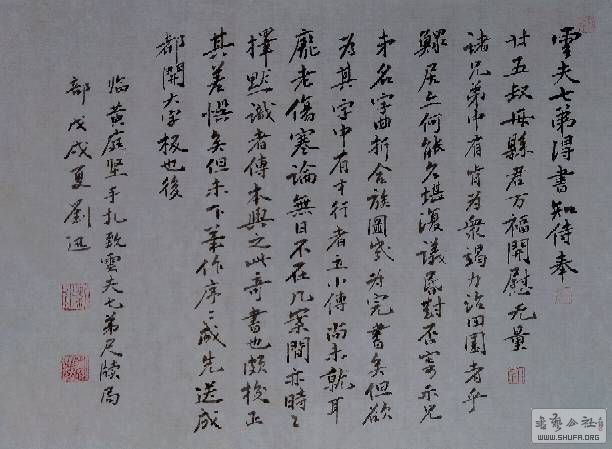 雲夫七弟得書知侍奉
廿五叔母縣君万福開慰无量
諸兄弟中有肯為衆竭力治田園者乎
鰥居亦何能久堪復議昏對否寄示兄
弟名字曲折合族圖或为完書矣但欲
为其字中有才行者立小傳尚未就耳
龐老傷寒論無日不在几案間亦時時
擇默識者傳本與之此奇書也頗校正
其差悮矣但未下筆作序序成先送成
都開大字板也後
临黄庭坚手扎致雲夫七弟尺牍局
部戊戌夏劉迅
書藝公社
WWW.SHUFA.ORG